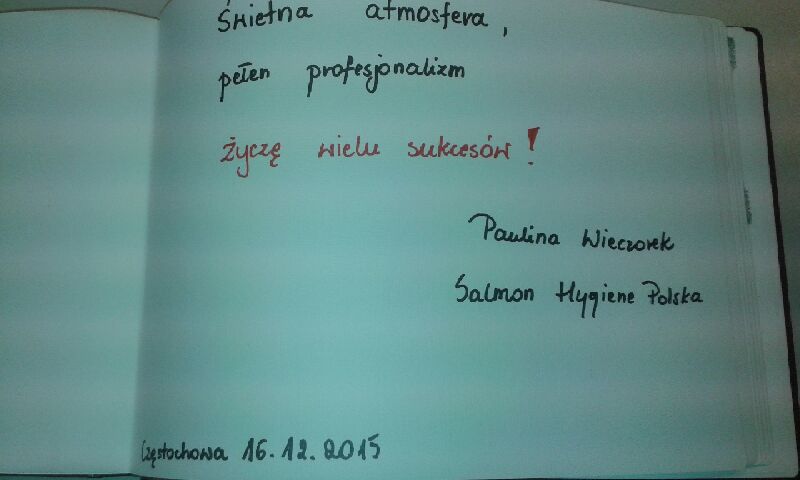 Świetna atmosfera,
pełen profesjonalizm
życzę wielu sukcesów!
Paulina Wieczorek
Salmon Hygiene Polska
Częstochowa 16.12.2015